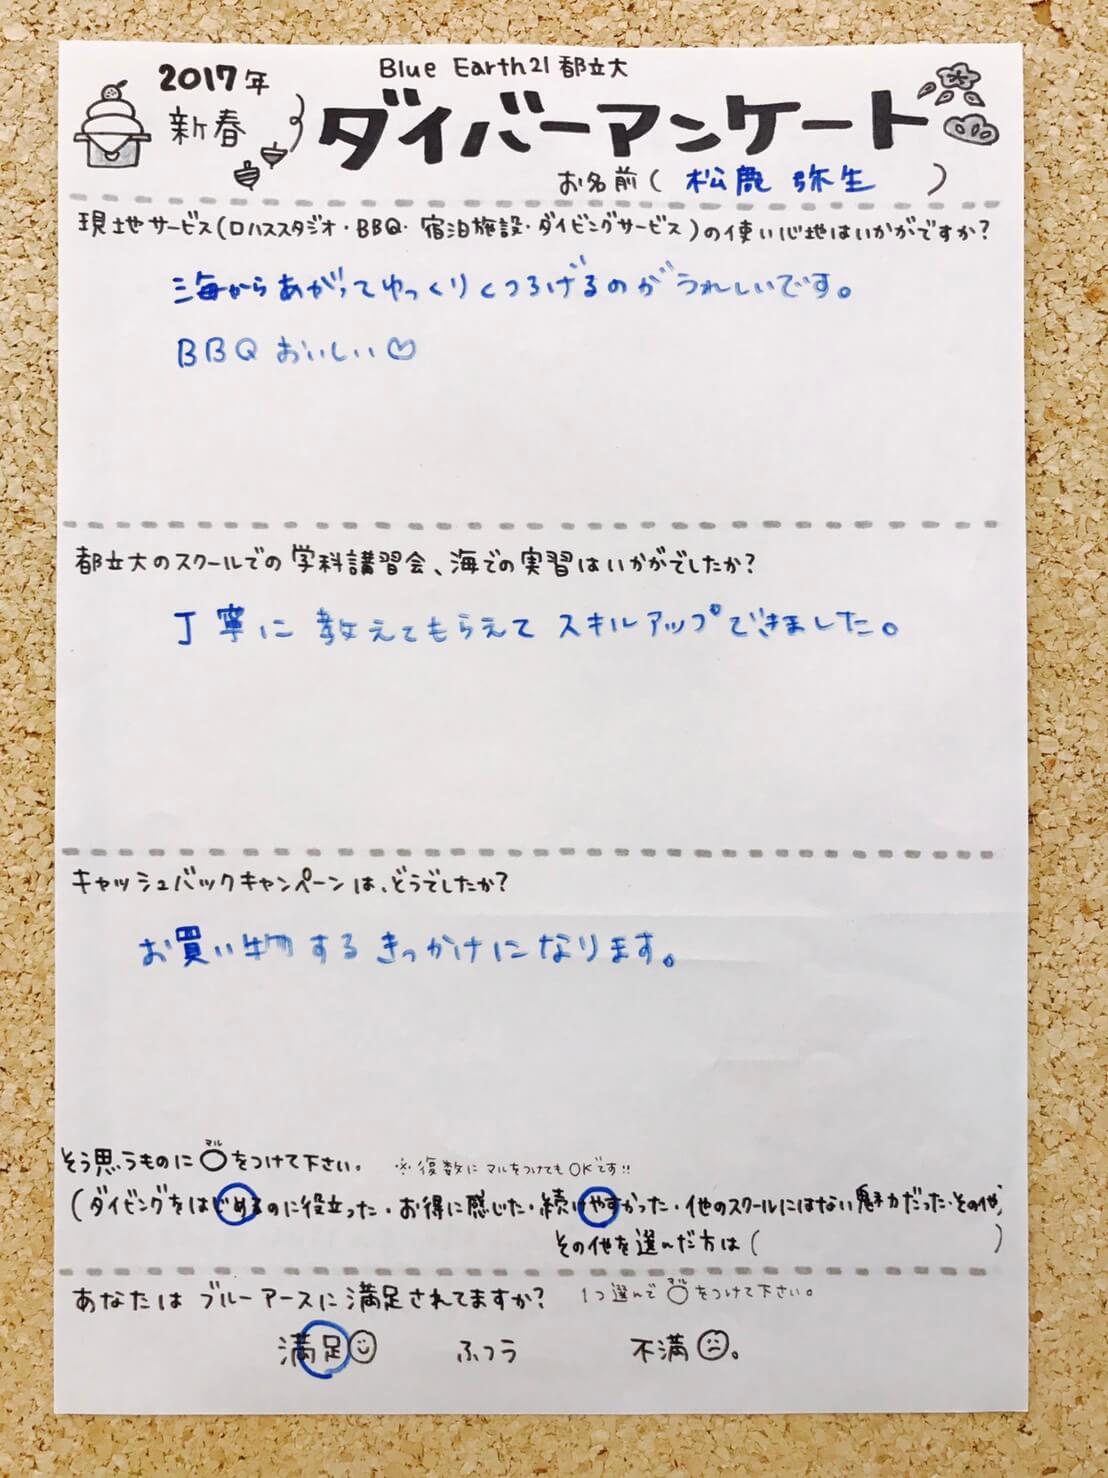 2017年
新春
Blue Earth21 都立大
ダイバーアンケート
お名前( 松鹿 弥生 )
現地サービス(ロハススタジオ・BBQ・宿泊施設・ダイビングサービス)の使い心地はいかがですか?
海からあがってゆっくりくつろげるのがうれしいです。
BBQ おいしい♡
都立大のスクールでの学科講習会、海での実習はいかがでしたか?
丁寧に教えてもらえてスキルアップできました。
キャッシュバックキャンペーンは、どうでしたか?
お買い物するきっかけになります。
そう思うものに○マルをつけて下さい。 ※復数にマルをつけてもOKです!!
(ダイビングをはじめるのに役立った・お得に感じた・続けやすかった・他のスクールにはない魅力だった・その他)
その他を選んだ方は( )
あなたはブルーアースに満足されてますか? 1つ選んで○マルをつけて下さい。
満足 ふつう 不満。